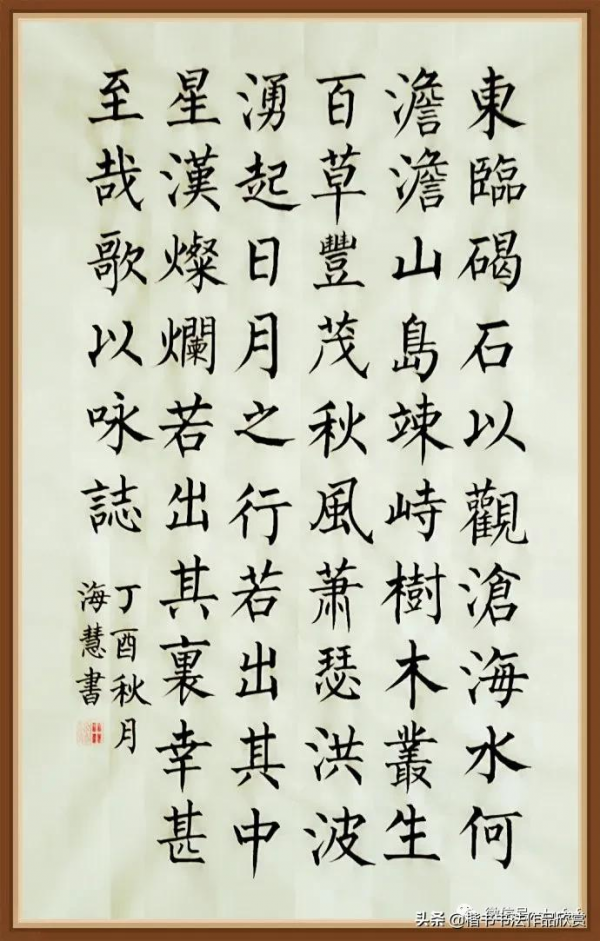 東臨碣石以觀滄海水何
澹澹山島竦峙樹木叢生
百草豐茂秋風蕭瑟洪波
湧起日月之行若出其中
星漢燦爛若出其裏幸甚
至哉歌以咏誌
丁酉秋月
海慧書
头条@楷书书法作品欣赏